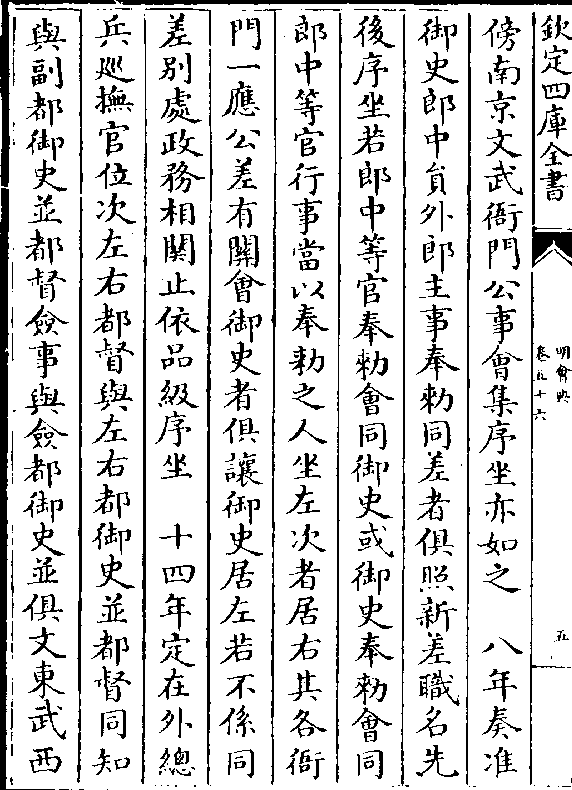 欽定四庫全書
明會典
卷五十六
五
傍南京文武衙門公事會集序坐亦如之　八年奏准
御史郎中員外郎主事奉勑同差者俱照新差職名先
後序坐若郎中等官奉勑會同御史或御史奉勑會同
郎中等官行事當以奉勑之人坐左次者居右其各衙
門一應公差有關會御史者俱讓御史居左若不係同
差别處政務相關止依品級序坐　十四年定在外總
兵廵撫官位次左右都督與左右都御史並都督同知
與副都御史並都督僉事與僉都御史並俱文東武西